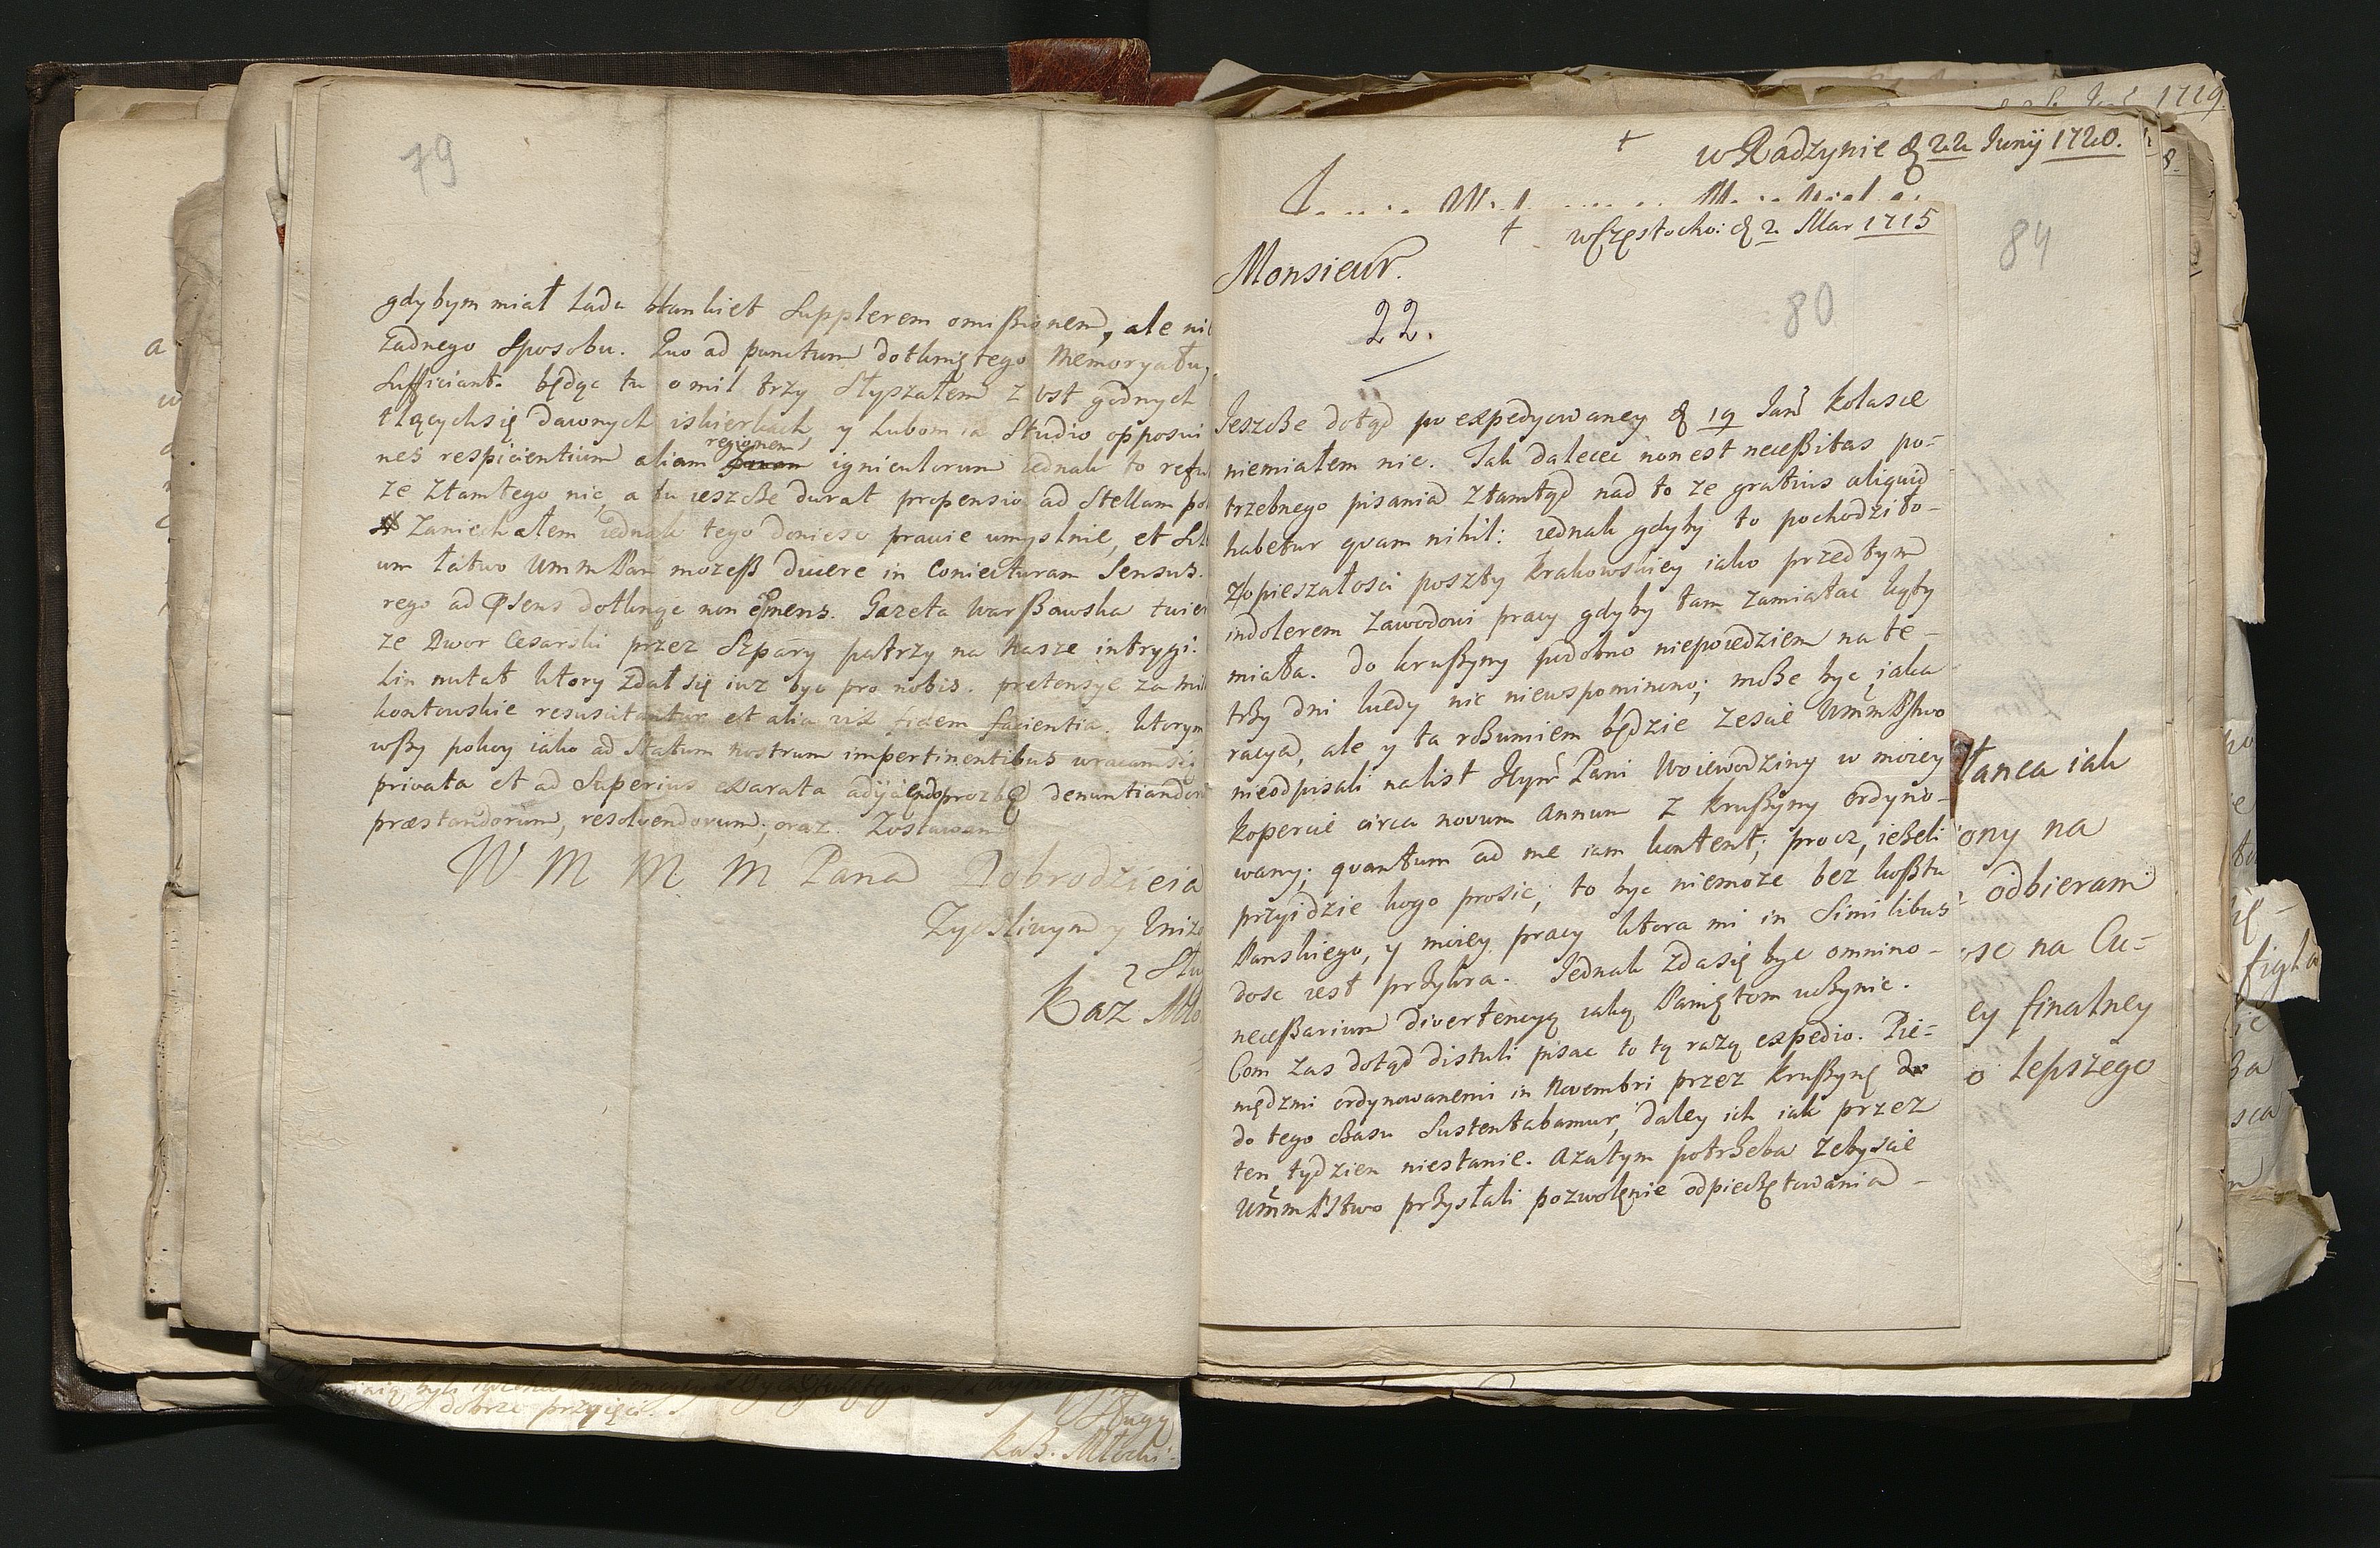 79
gdybym miał ladu blankiet Supplerem omissionem, ale ni
żadnego Sposobu. Quo ad punctum dotkniętego Memoryału,
Sufficiant. będąc tu o mil trzy Słyszałem z ust godnych
tlącychsię dawnych iskierkach y lubom ia Studio opposui
nes respicientium aliam regionem igniculorum iednak to refu
ze ztamtego nic, a tu ieszcze durat propensio ad Stellam po
Zaniechałem iednak tego doniesc prawie umyslnie, et
um łatwo UmmPan mozesz ducere in Coniecturam Sensus.
rego ad dotknąc non Gazeta Warszawska twier
ze Dwor Cesarski przez Szpary patrzy na nasze intrygi.
lin nutat ktory zdał się iuz byc pro nobis. pretensye za mil
kontowskie resuscitantur et alia vix fidem facientia. ktorym
wszy pokoy iako ad Statum nostrum impertinentibus wracamsię
privata et ad Superius exarata adijciendo prozbę denuntiandor
præstandorum, resolvendorum; oraz Zostawam
W M M M Pana Dobrodzieia
Zyczliwym y Uniz
Słu
Kaz Mło
dobrze przyięci.
Sługą
Kaz. Młocki
1719.
† w Radzynie d 22 Junij 1720.
† w Częstocho: d 2 Mar 1715
84
Monsieur.
80
22.
Ieszcze dotąd po expedyowaney d 19 Jan kolasce
niemiałem nic. Tak dalece non est necessitas po-
trzebnego pisania ztamtąd nad to ze gratius aliquid
habetur quam nihil: iednak gdyby to pochodziło
z opieszałosci poszty Krakowskiey iako przedtym
indolerem zawodowi pracy gdyby tam zamiatac kąty
miała. Do kruszyny podobno niepoiedziem na te-
trzy dni kiedy nic niewspomineno; może byc iaka
racya, ale y ta rozumiem będzie zescie UmmPstwo
nieodpisali na list Jeym Pani Woiewodziny w moiey
kopercie circa novum Annum z kruszyny ordyno-
wany; quantum ad me iam kontent; procz, ieżeli
przyidzie kogo prosic; to byc niemoze bez kosztu
Panskiego, y moiey pracy ktora mi in Similibus
dosc iest przykra. Jednak zdasię byc omnino-
necessarium divertencyą iaką Paniętom uczynic.
Com zas dotąd distuli pisac to tą razą expedio. Pie-
niędzmi ordynowanemi in Novembri przez kruszynę
do tego czasu Sustentabamur, daley ich iak przez
ten tydzien niestanie. Azatym potrzeba zebyscie
UmmPstwo przysłali pozwolenie odpieczętowania
łanca iak
ony na
odbieram
osc na Cu-
ey finalney
o lepszego